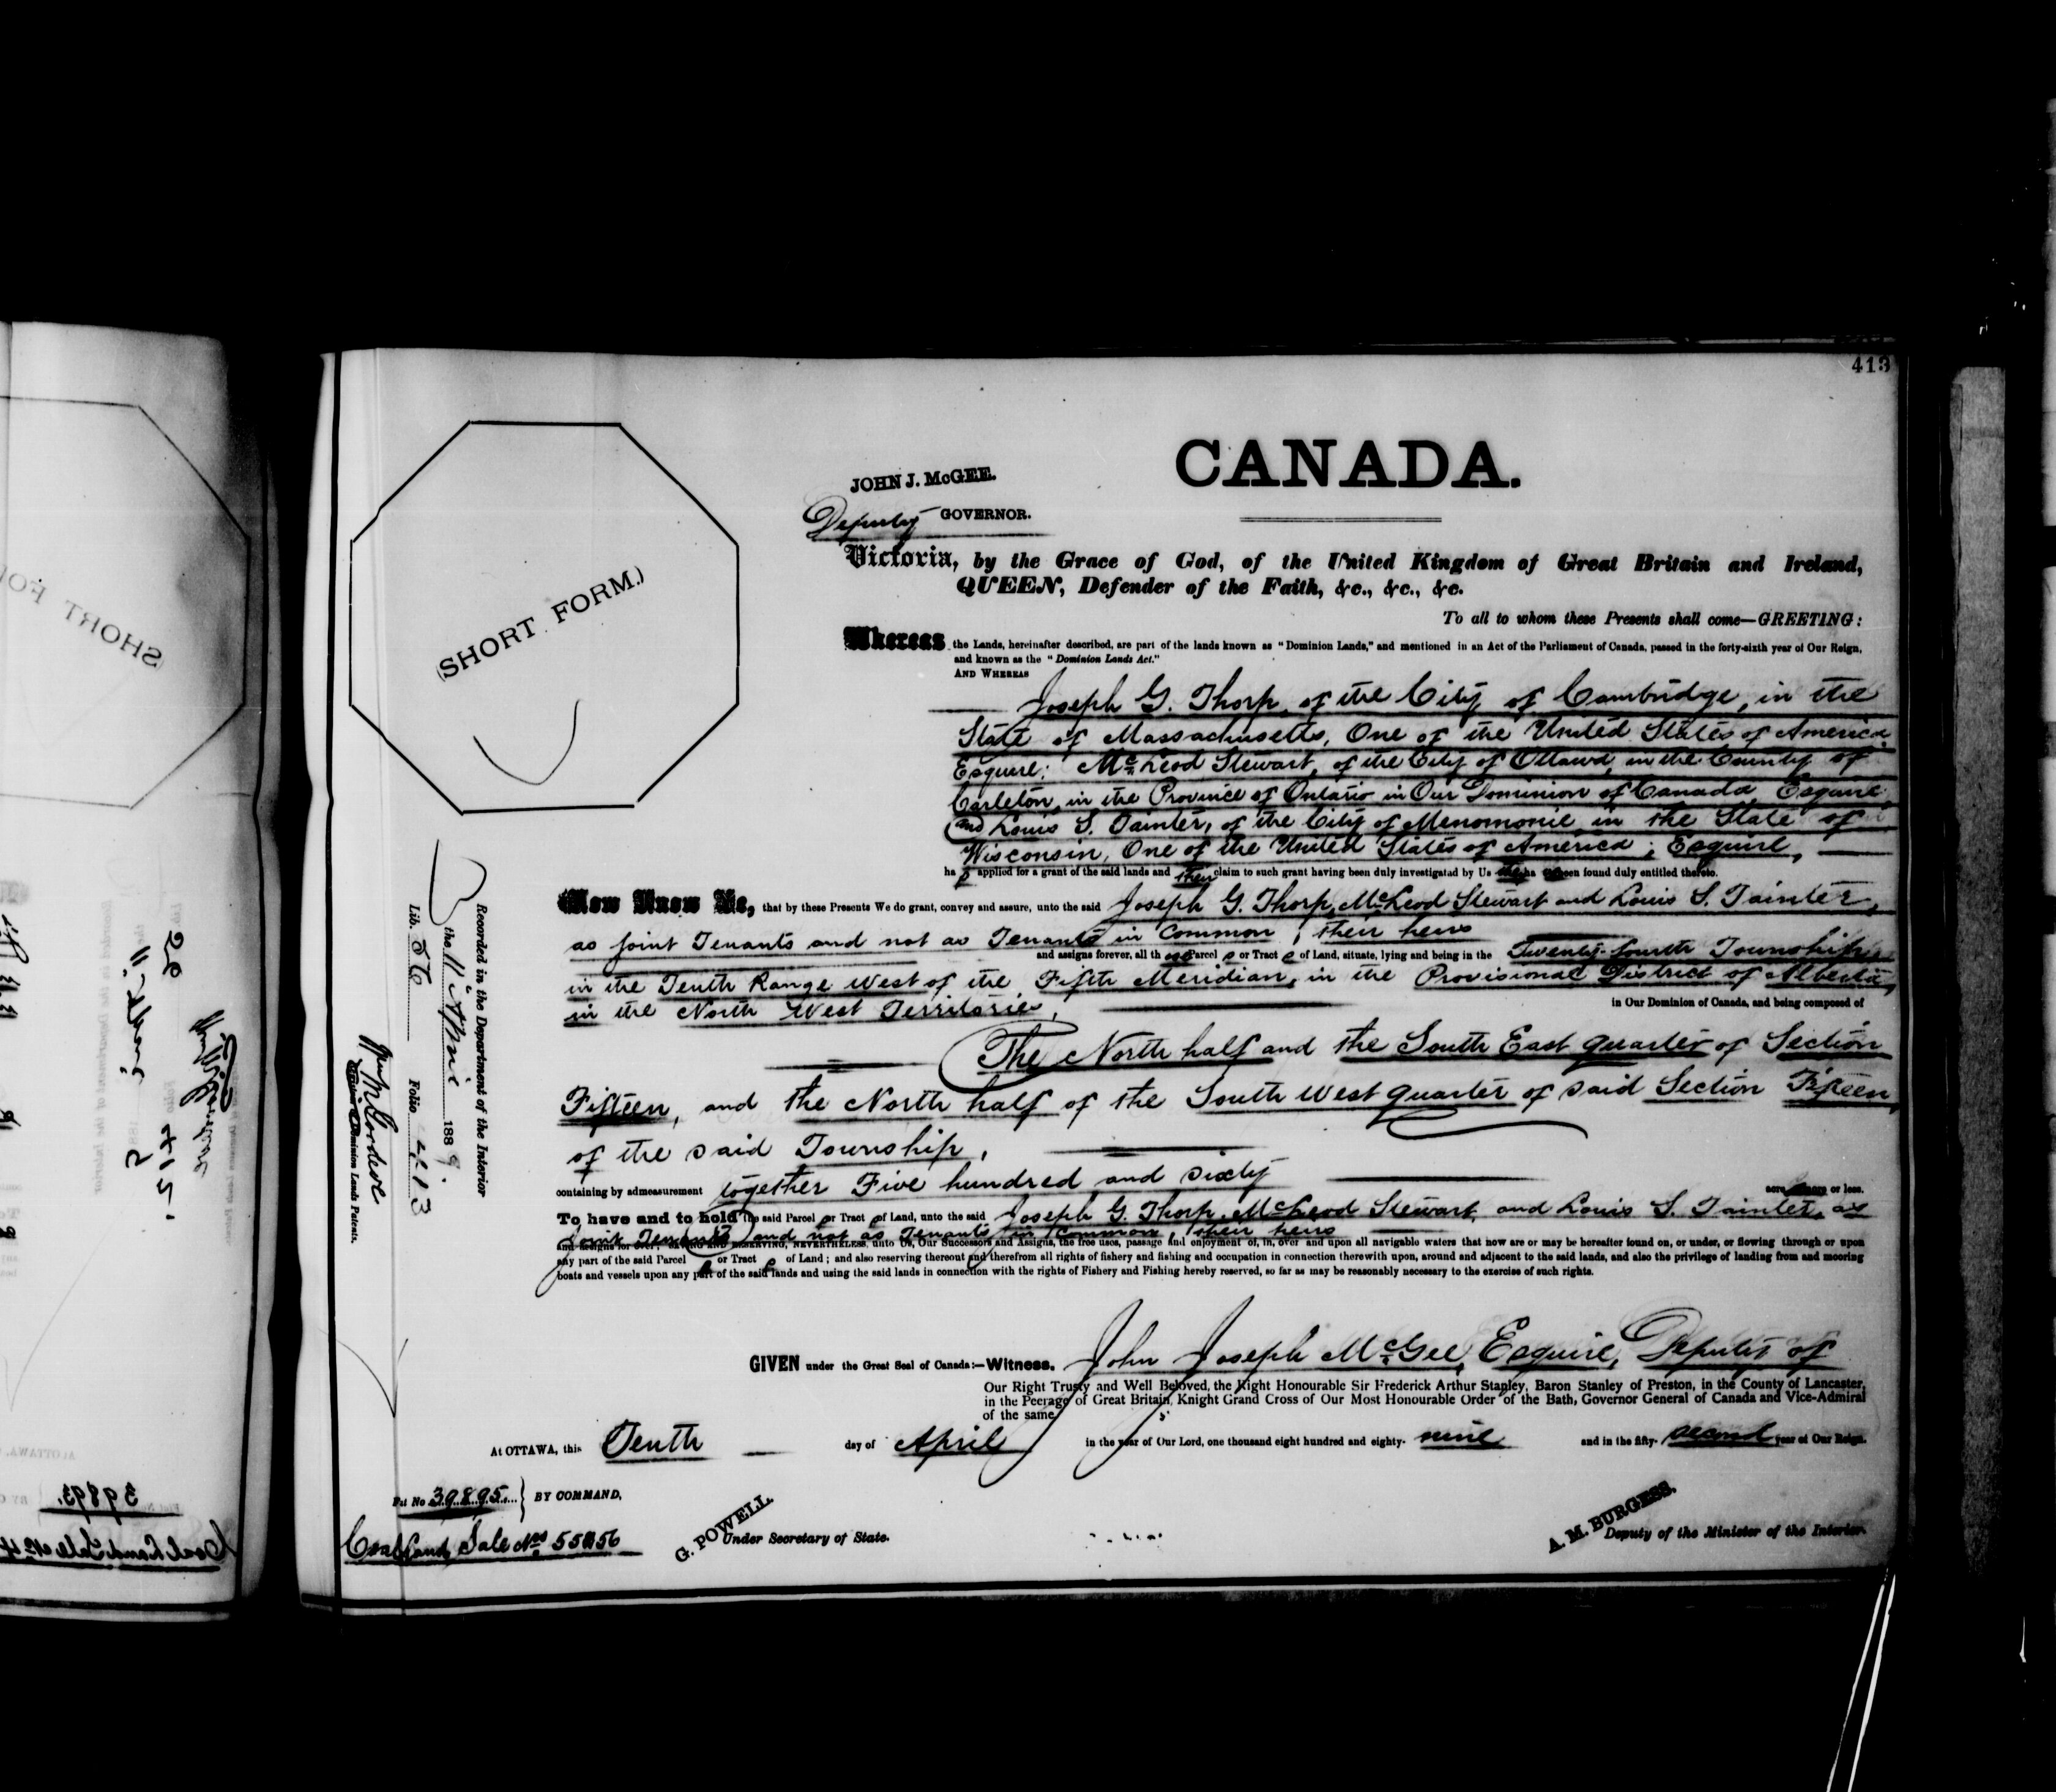 413
CANADA.
JOHN J. McGEE.
Deputy GOVERNOR.
(SHORT FORM.)
Victoria, by the Grace of God, of the United Kingdom of Great Britain and Ireland,
QUEEN, Defender of the Faith, &c., &c., &c.
To all to whom these Presents shall come—GREETING:
Whereas the Lands, hereinafter described, are part of the lands known as "Dominion Lands," and mentioned in an Act of the Parliament of Canada, passed in the forty-sixth year of Our Reign,
and known as the "Dominion Lands Act."
AND WHEREAS
Joseph G. Thorp, of the City of Cambridge, in the
State of Massachusetts, One of the United States of America
Esquire; McLeod Stewart, of the City of Ottawa, in the County of
Carleton, in the Province of Ontario in Our Dominion of Canada, Esquire,
and Louis S. Tainter, of the City of Menomonie in the State of
Wisconsin, One of the United States of America; Esquire,
ha applied for a grant of the said lands and their claim to such grant having been duly investigated by Us been found duly entitled thereto.
Now Know Ye, that by these Presents We do grant, convey and assure, unto the said Joseph G. Thorp, McLeod Stewart and Louis S. Tainter,
as joint Tenants and not as Tenants in Common, their heirs
and assigns forever, all th Parcel or Tract of Land, situate, lying and being in the Twenty-fourth Township,
in the Tenth Range West of the Fifth Meridian, in the Provisional District of Alberta,
in the North West Territories,
in Our Dominion of Canada, and being composed of
The North half and the South East quarter of Section
Fifteen, and the North half of the South West quarter of said Section Fifteen,
of the said Township,
containing by admeasurement together Five hundred and sixty acre or less.
To have and to hold the said Parcel or Tract of Land, unto the said Joseph G. Thorp, McLeod Stewart, and Louis S. Tainter, as
Joint Tenants and not as Tenants in Common, their heirs
and assigns for ever; SAVING AND RESERVING, NEVERTHELESS, unto Us, Our Successors and Assigns, the free uses, passage and enjoyment of, in, over and upon all navigable waters that now are or may be hereafter found on, or under, or flowing through or upon
any part of the said Parcel or Tract of Land; and also reserving thereout and therefrom all rights of fishery and fishing and occupation in connection therewith upon, around and adjacent to the said lands, and also the privilege of landing from and mooring
boats and vessels upon any part of the said lands and using the said lands in connection with the rights of Fishery and Fishing hereby reserved, so far as may be reasonably necessary to the exercise of such rights.
GIVEN under the Great Seal of Canada:—Witness, John Joseph McGee, Esquire, Deputy of
Our Right Trusty and Well Beloved, the Right Honourable Sir Frederick Arthur Stanley, Baron Stanley of Preston, in the County of Lancaster,
in the Peerage of Great Britain, Knight Grand Cross of Our Most Honourable Order of the Bath, Governor General of Canada and Vice-Admiral
of the same,
At OTTAWA, this Tenth day of April in the year of Our Lord, one thousand eight hundred and eighty-nine and in the fifty-second year of Our Reign.
Fiat No 39895 BY COMMAND,
Coal Land Sale Nos 55
G. POWELL.
Under Secretary of State.
A. M. BURGESS.
Deputy of the Minister of the Interior.
Recorded in the Department of the Interior
the 11 April 1889
Lib. 56 Folio 413
Dominion Lands Patents.
SHORT
39893.
Coal Land Sale No